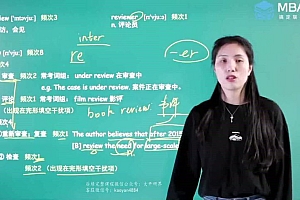 MBA
频次3
reviewer /rɪˈvjuːə/ 频次1
访, 会见
n. 评论员
inter
re
-er
审查 频次2 常考词组: under review 在审查中
e.g. The case is under review. 案件正在审查中。
频次1 常考词组: film review 影评
book review 书评
(出现在完形填空干扰项)
重新审查; 复查 频次1 The author believes that after 2015
[B] review the need for large-scale
③ 检查 频次1
频次2 (出现在完形填空干扰项)